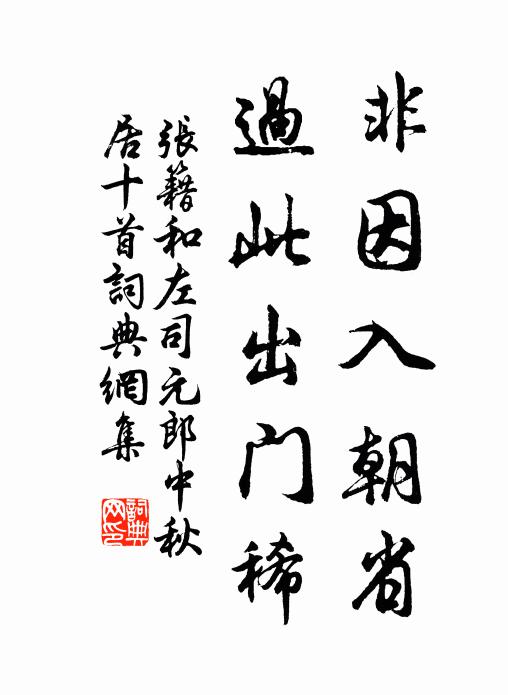 非因入朝省
過此出门稀
張籍和左司元郎中秋
居十首詞典網集
詞典
网印